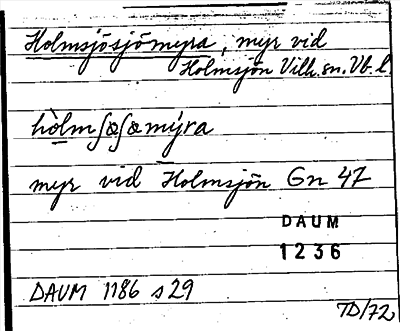 Holmsjösjömyra, myr vid
Holmsjön Vilh. sn. Vb. l.
hòlmʃøʃømýra
myr vid Holmsjön Gn 47
DAUM
1236
DAUM 1186 s 29
TD/72